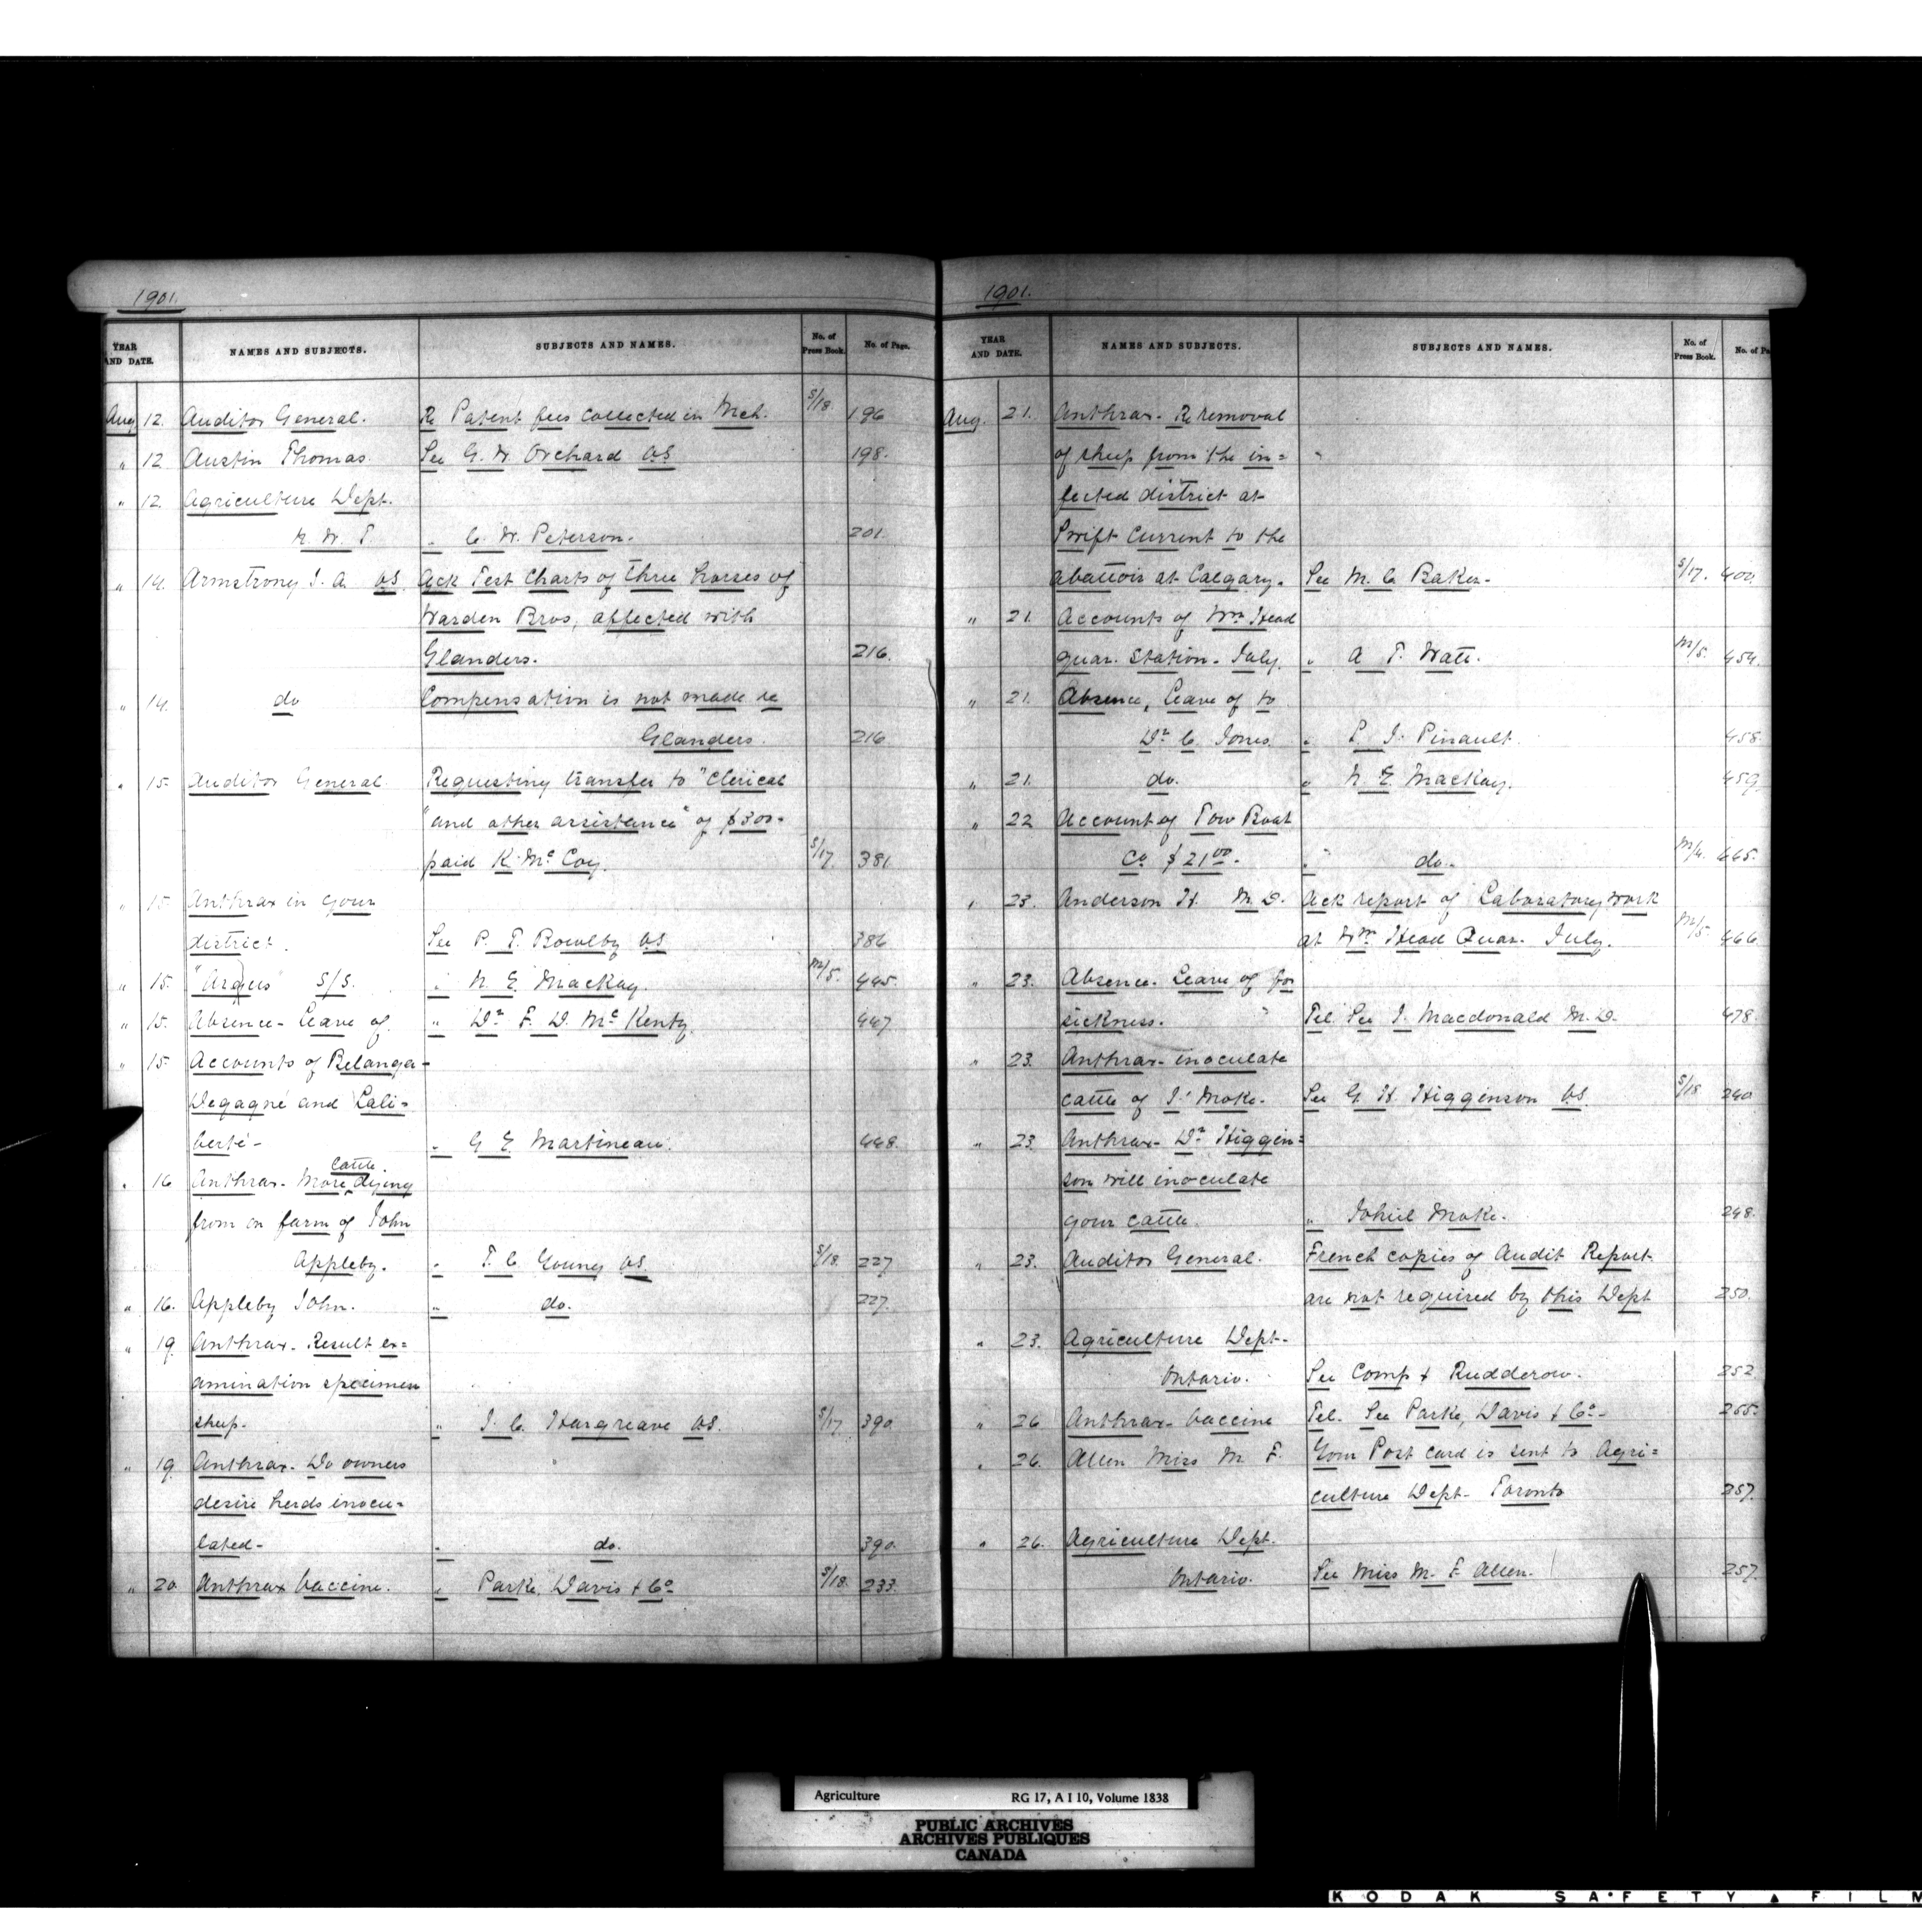 1901.
YEAR AND DATE. NAMES AND SUBJECTS. SUBJECTS AND NAMES. No. of Press Book. No. of Page.
Aug 12. Auditor General. Re Patent fees collected in Mch. S/18 196
" 12 Austin Thomas. See G. W. Orchard VS 198.
" 12. Agriculture Dept.
N. W. T. " C. W. Peterson. 201.
" 14. Armstrong J. A. VS Ack Test Charts of three horses of
Warden Bros, affected with
Glanders. 216.
" 14. do Compensation is not made re
Glanders. 216
" 15. Auditor General. Requesting transfer to "Clerical
"and other assistance" of $300-
paid K. McCoy. S/17. 381
" 15. Anthrax in your
district. See P. T. Bowlby VS 386
" 15. "Argus" S/S. " N. E. Mackay. M/5. 445.
" 15. Absence - Leave of " Dr F. D. McKenty. 447
" 15. Accounts of Belanger -
Degagné and Lali=
berté - " G E. Martineau. 448.
" 16 Anthrax - More cattle dying
from on farm of John
Appleby. " T. C. Young VS. S/18. 227
" 16. Appleby John. " do. 227.
" 19. Anthrax - Result ex=
amination specimen
sheep. " J. C. Hargreave VS. S/17 390
" 19. Anthrax - Do owners
desire herds inocu=
lated - " do. 390.
" 20. Anthrax Vaccine. " Parke Davis & Co S/18. 233.
1901.
YEAR AND DATE. NAMES AND SUBJECTS. SUBJECTS AND NAMES. No. of Press Book. No. of Pa
Aug. 21. Anthrax - Re removal
of sheep from the in= "
fected district at
Swift Current to the
abattoir at Calgary. See M. C. Baker - S/17. 400.
" 21. Accounts of Wm Head
quar. Station - July. " A T. Watt. M/5. 454.
" 21. Absence, Leave of to
Dr C. Jones. " P. J. Pinault. 458
" 21. do. " N. E. Mackay. 459
" 22 Account of Tow Boat
Co $21.00. " do. M/4. 665.
" 23. Anderson H. M. D. Ack report of Laboratory work
at Wm Head Quar. July. M/5 466.
" 23. Absence - Leave of for
sickness. " Tel. See J. Macdonald M. D. 478.
" 23. Anthrax - inoculate
cattle of J. Moke. See G. H. Higginson VS. S/18 240
" 23. Anthrax - Dr Higgin=
son will inoculate
your cattle. " Johiel Moke. 248.
" 23. Auditor General. French copies of Audit Report
are not required by this Dept 250.
" 23. Agriculture Dept -
Ontario. See Comp & Rudderow. 252
" 26 Anthrax - Vaccine Tel. See Parke, Davis & Co - 255.
" 26. Allen Miss M. F. Your Post card is sent to Agri=
culture Dept - Toronto 257.
" 26. Agriculture Dept.
Ontario. See Miss M. F. Allen. 257.
Agriculture RG 17, A I 10, Volume 1838
PUBLIC ARCHIVES
ARCHIVES PUBLIQUES
CANADA
KODAK SAFETY FILM